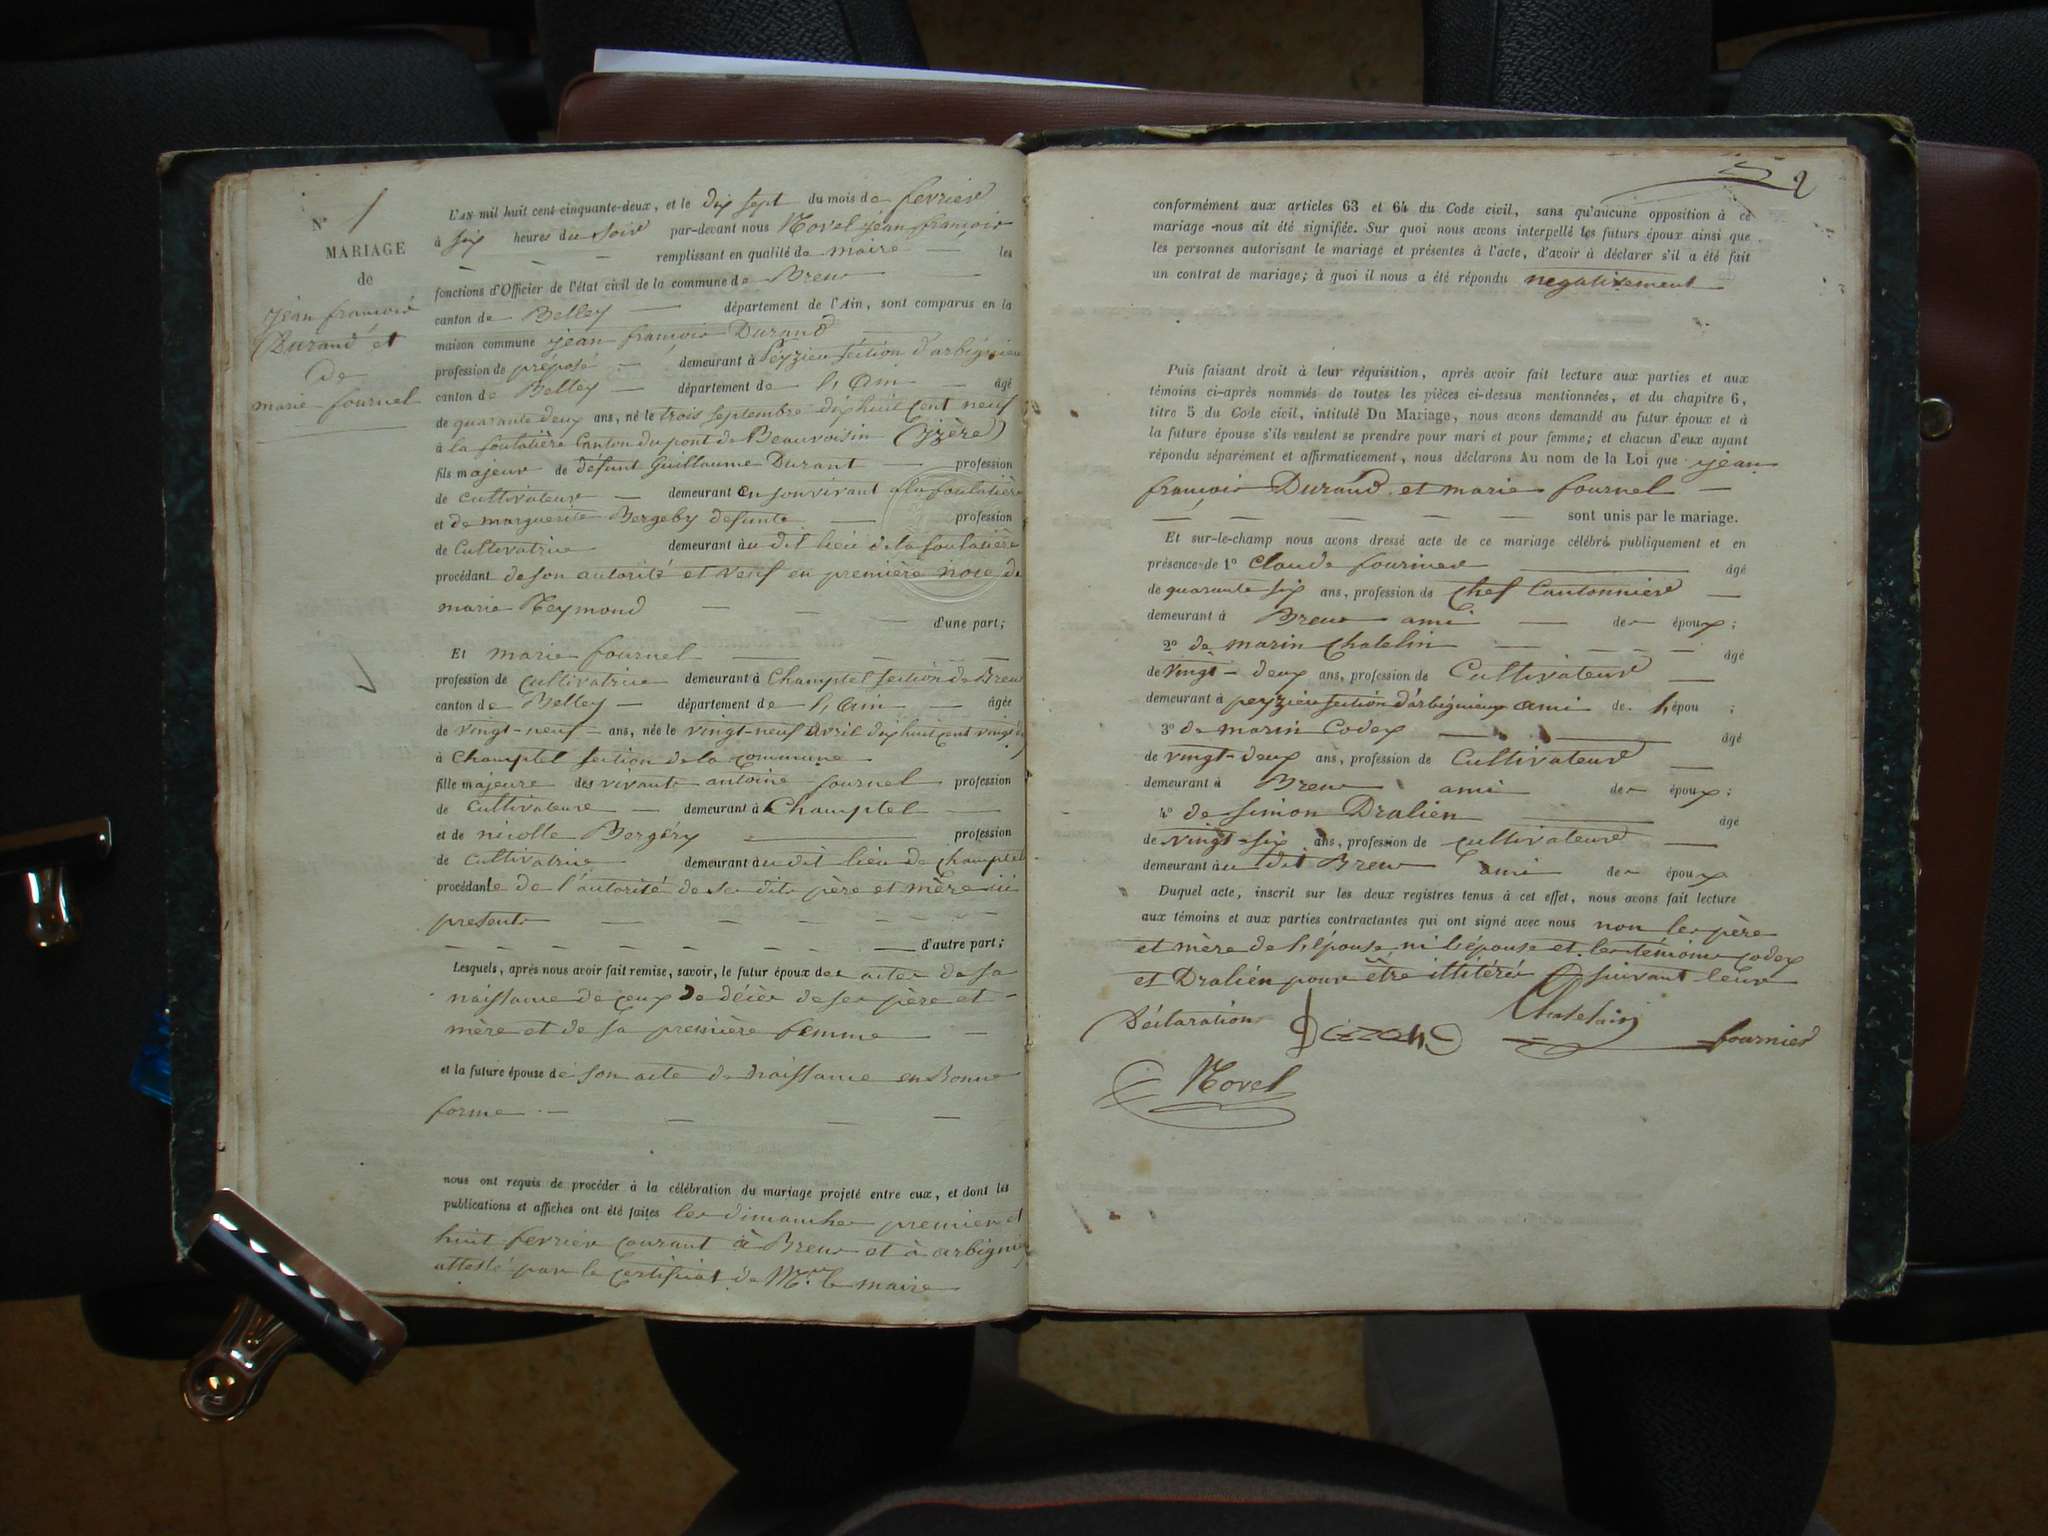 N° 1
MARIAGE
de
jean francois
Durand et
de
marie fournel
L'AN mil huit cent cinquante-deux, et le dix sept du mois de fevrier
à six heures du soir par-devant nous Novel jean francois
remplissant en qualité de maire les
fonctions d'Officier de l'état civil de la commune de Brens
canton de Belley département de l'Ain, sont comparus en la
maison commune jean francois Durand
profession de préposé demeurant à Peyzieu séction d'arbignieu
canton de Belley département de l'Ain âgé
de quarante deux ans, né le trois septembre dix huit cent neuf
à la foulatière Canton du pont de Beauvoisin (Yzère)
fils majeur de défunt Guillaume Durant profession
de cultivateur demeurant en son vivant a la foulatière
et de marguerite Bergeby defunte profession
de Cultivatrice demeurant au dit lieu de la foulatière
procédant de son autorité et veuf en première noce de
marie Reymond
d'une part;
Et marie fournel
profession de cultivatrice demeurant à Champtel section de Brens
canton de Belley département de l'Ain âgée
de vingt-neuf ans, née le vingt-neuf avril dix huit cent vingt
à Champtel section de la commune
fille majeure des vivants antoine fournel profession
de cultivateure demeurant à Champtel
et de nicolle Bergéry profession
de cultivatrice demeurant au dit lieu de Champtel
procédante de l'autorité de ses dits père et mère ici
presents
d'autre part;
Lesquels, après nous avoir fait remise, savoir, le futur époux des actes de sa
naissance de ceux de décès de ses père et
mère et de sa première femme
et la future épouse de son acte de naissance en Bonne
forme
nous ont requis de procéder à la célébration du mariage projeté entre eux, et dont les
publications et affiches ont été faites les dimanches premier et
huit fevrier courant à Brens et à arbignieu
attesté par le certificat de Mr. le maire
2
conformément aux articles 63 et 64 du Code civil, sans qu'aucune opposition à ce
mariage nous ait été signifiée. Sur quoi nous avons interpellé les futurs époux ainsi que
les personnes autorisant le mariage et présentes à l'acte, d'avoir à déclarer s'il a été fait
un contrat de mariage; à quoi il nous a été répondu negativement
Puis faisant droit à leur réquisition, après avoir fait lecture aux parties et aux
témoins ci-après nommés de toutes les pièces ci-dessus mentionnées, et du chapitre 6,
titre 5 du Code civil, intitulé Du Mariage, nous avons demandé au futur époux et à
la future épouse s'ils veulent se prendre pour mari et pour femme; et chacun d'eux ayant
répondu séparément et affirmativement, nous déclarons Au nom de la Loi que jean
francois Durand et marie fournel
sont unis par le mariage.
Et sur-le-champ nous avons dressé acte de ce mariage célébré publiquement et en
présence de 1° Claude fournier âgé
de quarante six ans, profession de Chef Cantonnier
demeurant à Brens ami des époux;
2° de marin Chatelin âgé
de vingt-deux ans, profession de Cultivateur
demeurant à peyzieu section d'arbignieux ami de l'épou ;
3° de marin Codex âgé
de vingt-deux ans, profession de Cultivateur
demeurant à Brens ami des époux;
4° de simon Dralien âgé
de vingt-six ans, profession de cultivateur
demeurant au dit Brens ami des époux
Duquel acte, inscrit sur les deux registres tenus à cet effet, nous avons fait lecture
aux témoins et aux parties contractantes qui ont signé avec nous non les père
et mère de l'épouse ni l'épouse et les témoins codex
et Dralien pour être illitérés suivant leur
Déclaration
Chatelain
fournier
Novel